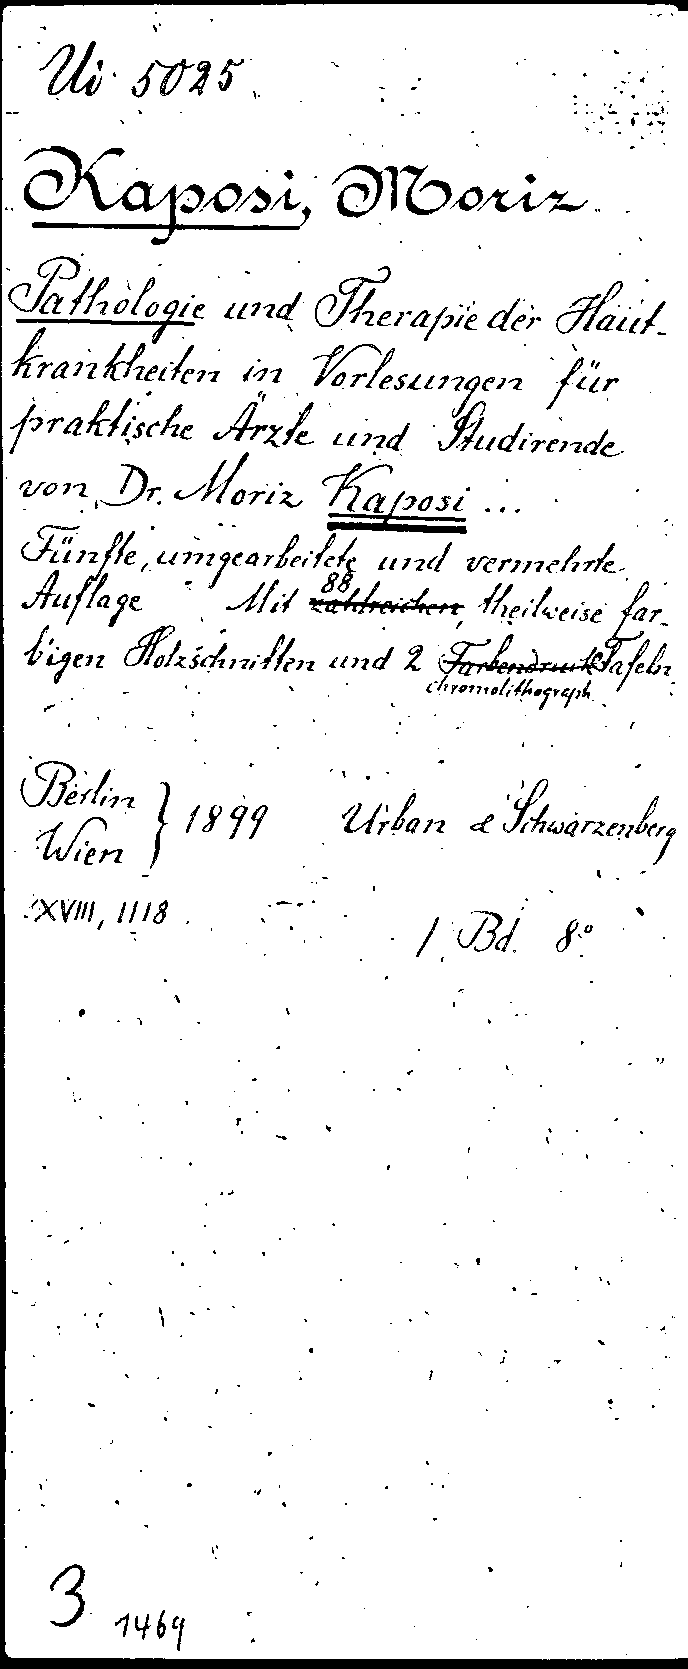 Ui 5025
Kaposi, Moriz
Pathologie und Therapie der Haut-
krankheiten in Vorlesungen für
praktische Ärzte und Studirende
von Dr. Moriz Kaposi ...
Fünfte, umgearbeitete und vermehrte
88
Auflage Mit zahlreichen, theilweise far-
bigen Holzschnitten und 2 Farbendruck Tafeln
chromolithograph.
Berlin
Wien } 1899 Urban & Schwarzenberg
XVIII, 1118
1 Bd. 8°
3 1469